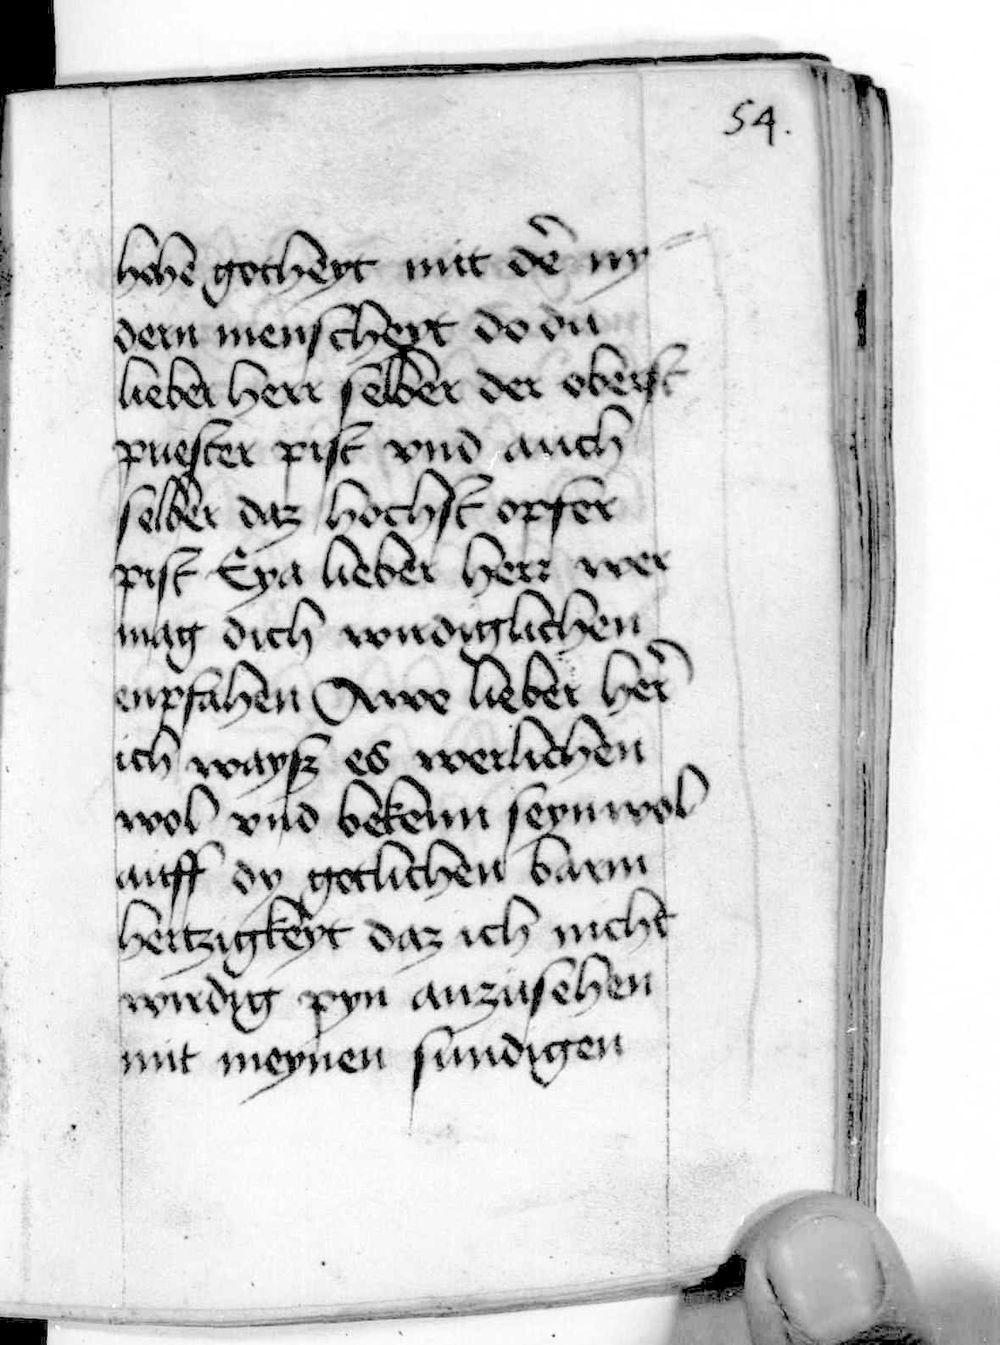 54.
hohe gotheyt mit dē ny-
dern menscheyt do du
lieber herr selber der oberst
priester pist vnd auch
selber daz hochst opfer
pist Eya lieber herr wer
mag dich wirdiglichen
enpfahen Owe lieber her̄
ich wayß es werlichen
wol vnd bekenn seyn wol
auff dy gotlichen barm
hertzigkeyt daz ich nicht
wirdig pyn anzusehen
mit meynen sundigen